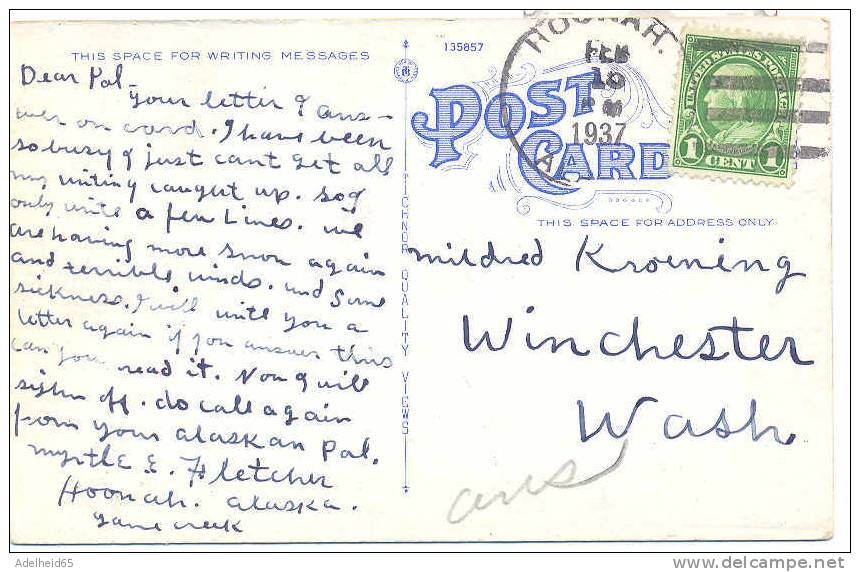 THIS SPACE FOR WRITING MESSAGES
Dear Pal-
your letter & ans-
wer on card. I have been
so busy & just cant get all
my writing caught up. so I
only write a few Lines. we
are having more snow again
and terrible winds. and Some
sickness. I will write you a
letter again if you answer this
can you read it. Now I will
sighn off. do call again
from your alaskan Pal.
myrtle E. Fletcher
Hoonah. alaska.
game creek
135857
TICHNOR QUALITY VIEWS
POST CARD
HOONAH.
FEB
18
PM
1937
UNITED STATES POSTAGE
1 CENT 1
THIS SPACE FOR ADDRESS ONLY
mildred Kroening
Winchester
Wash
ans
Adelheid65
delcampe.net